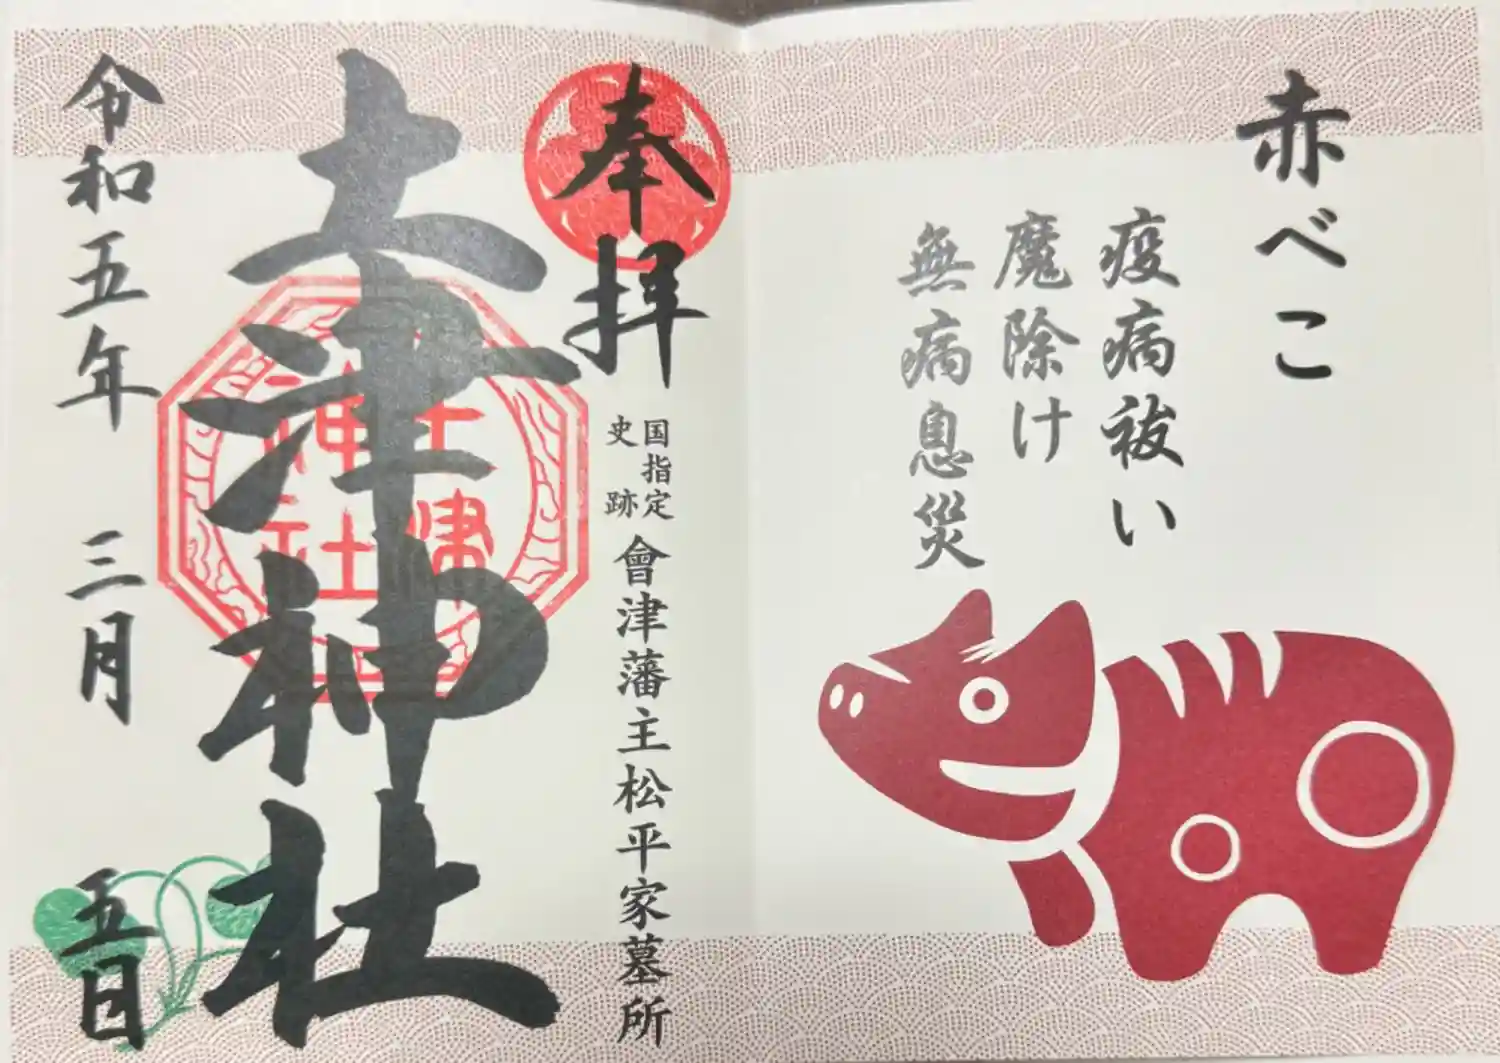 赤べこ
疫病祓い
魔除け
無病息災
奉拝
国指定
史跡
會津藩主松平家墓所
土津神社
土津
神社
令和五年 三月 五日